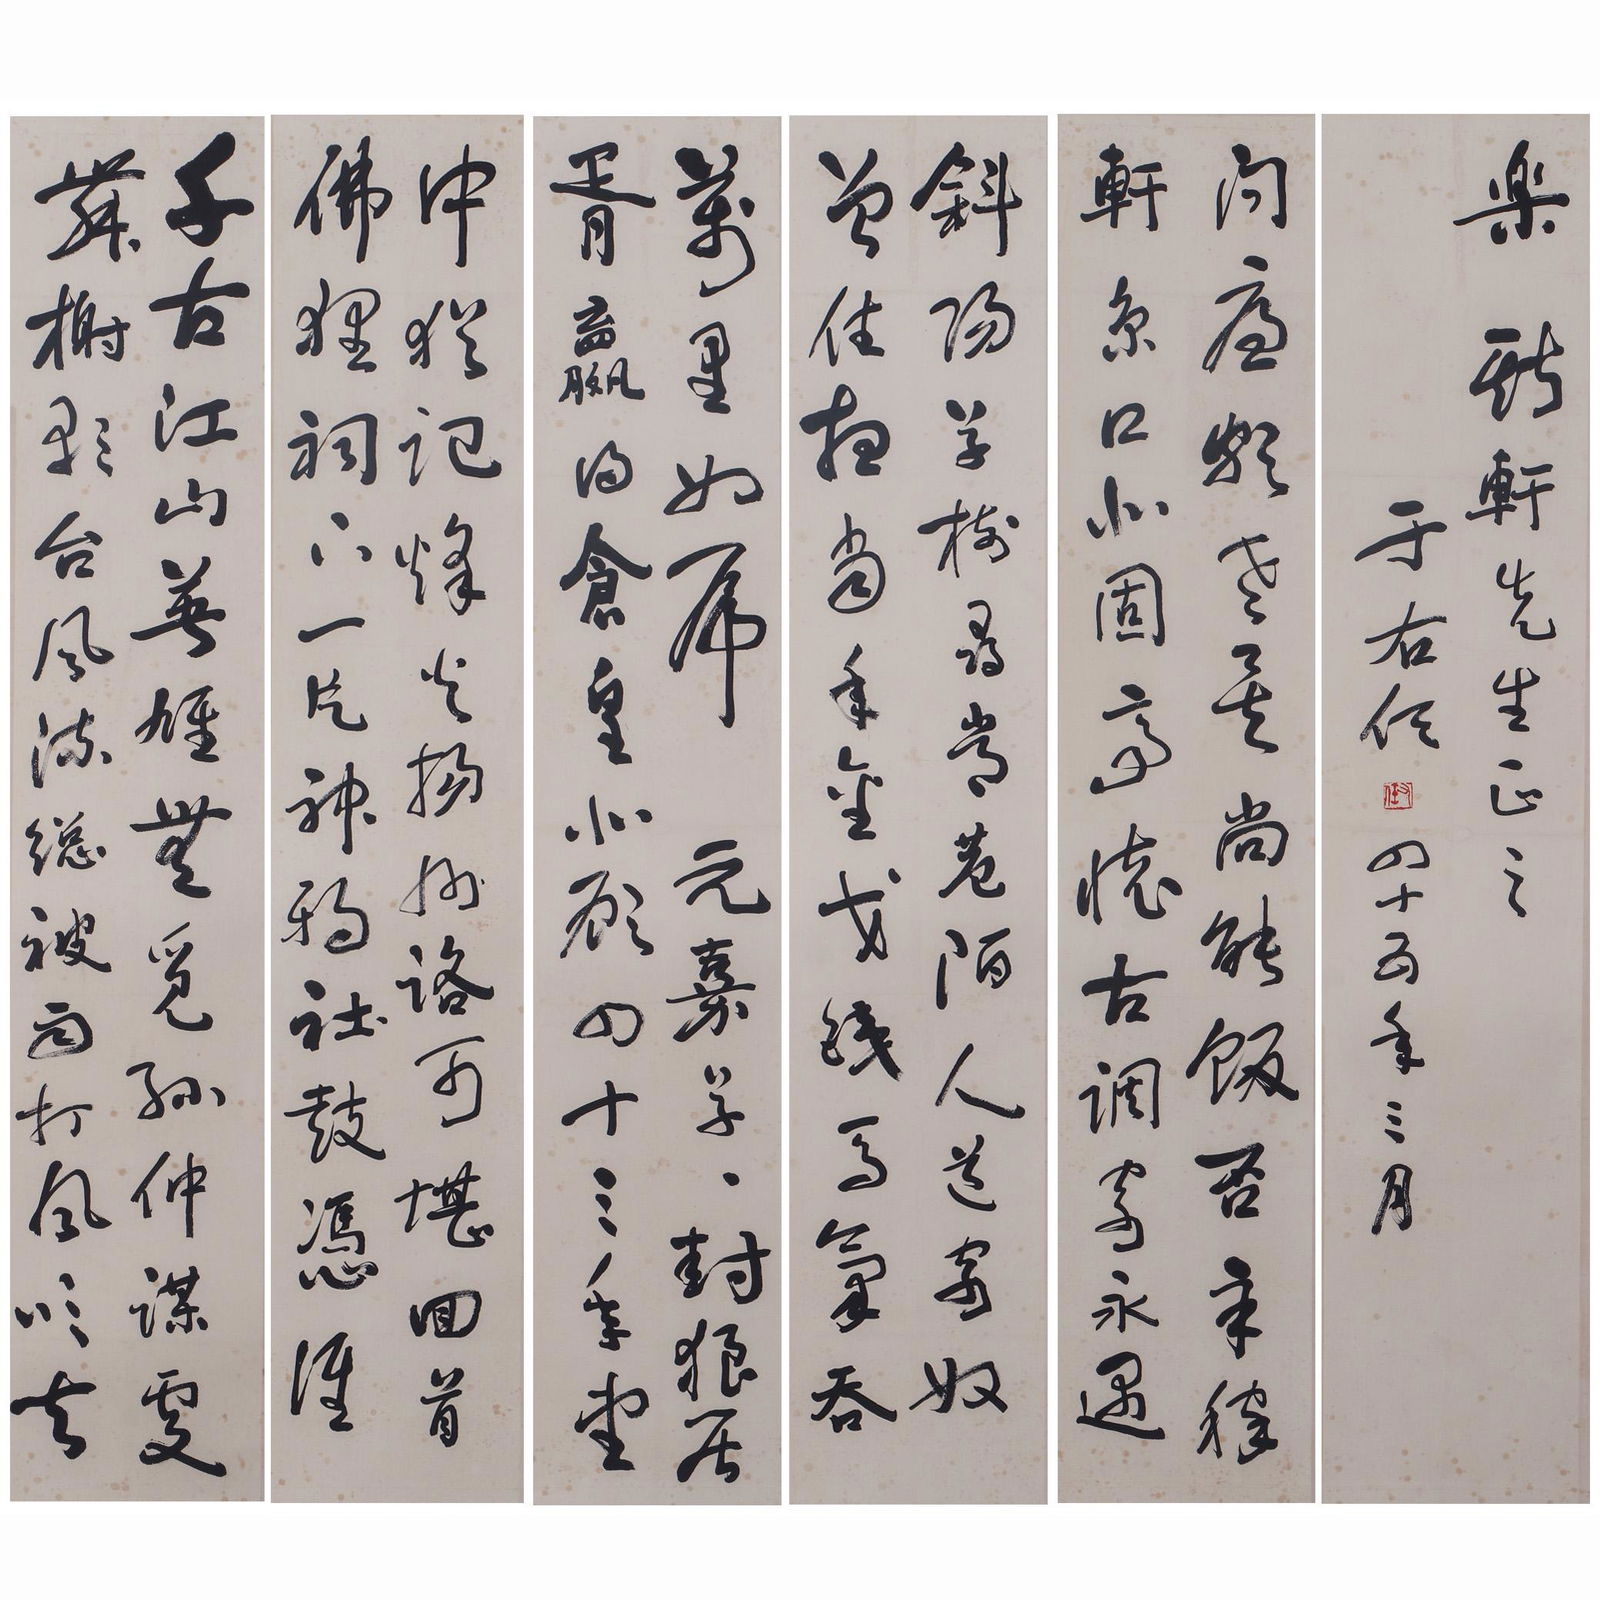 千古江山英雄無覓孫仲謀處
舞榭歌台風流總被雨打風吹去
斜陽草樹尋常巷陌人道寄奴
曾住想當年金戈鐵馬氣吞
萬里如虎 元嘉草、封狼居
胥贏得倉皇北顧四十三年望
中猶記烽火揚州路可堪回首
佛狸祠下一片神鴉社鼓憑誰
問廉頗老矣尚能飯否辛稼
軒京口北固亭懷古調寄永遇
樂 軒先生正之
于右任 右任 四十五年三月